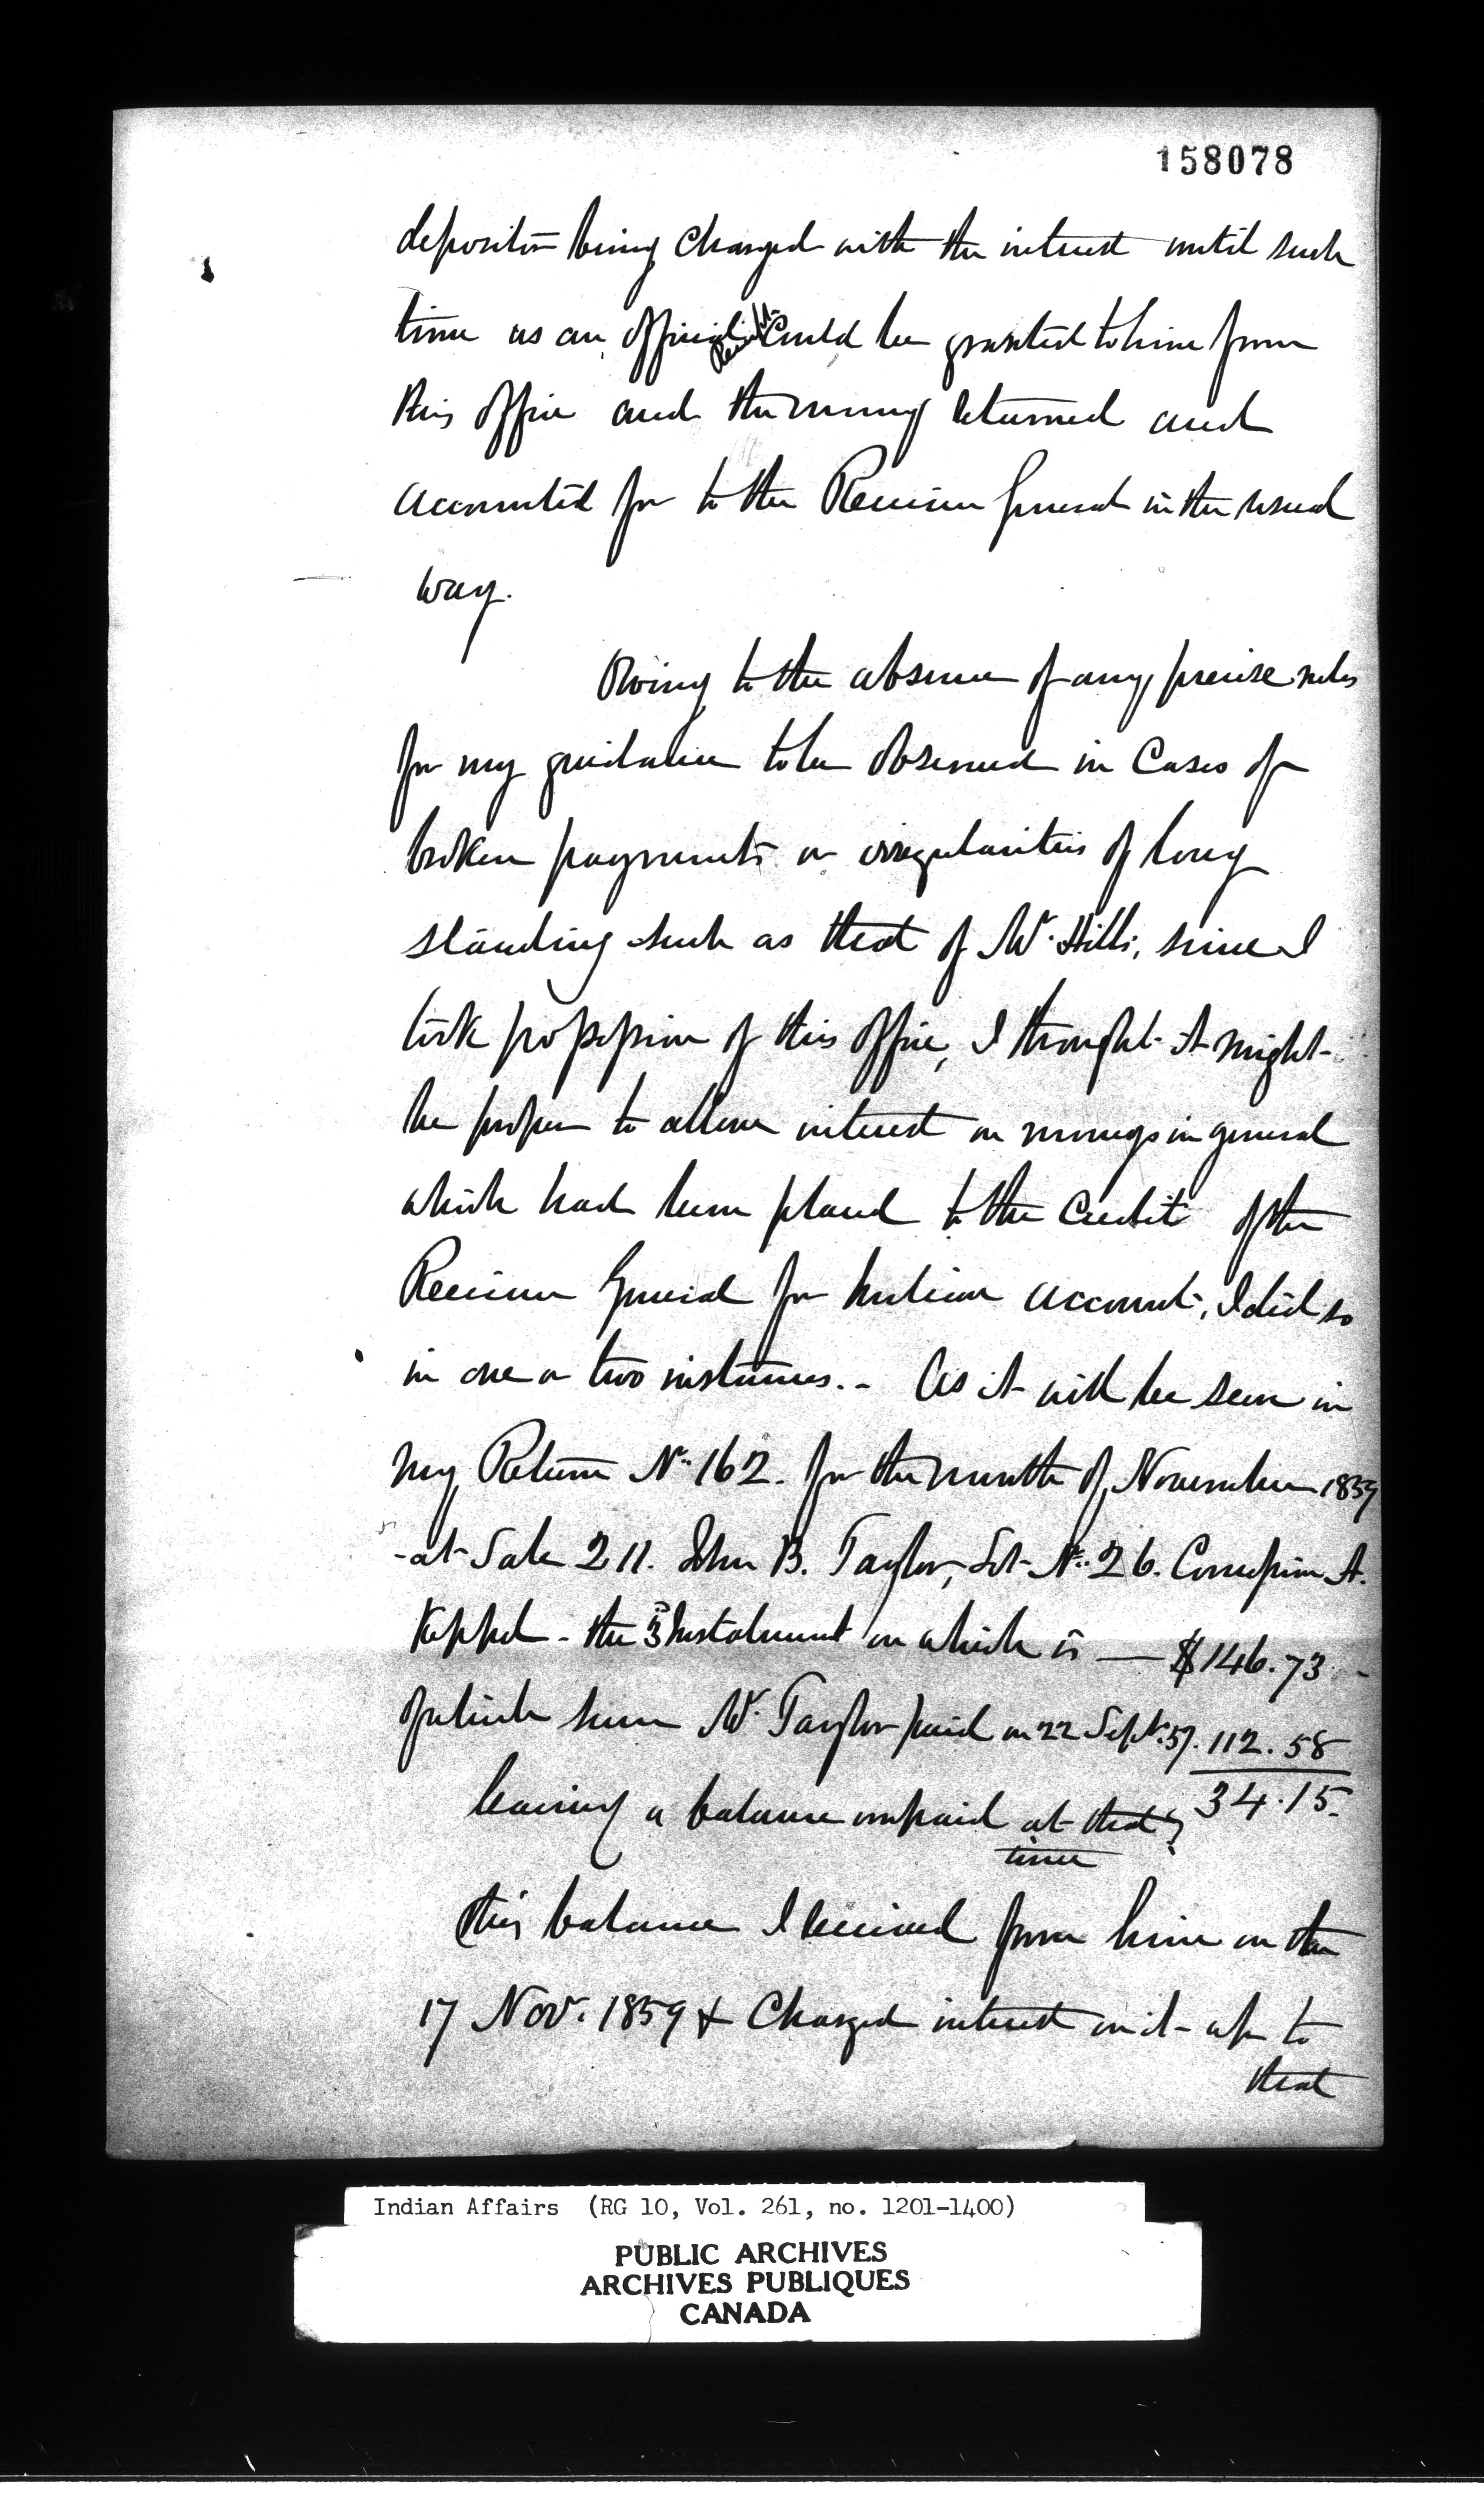 158078
depositor being charged with the interest until such
time as an official Receipt could be granted to him from
this office and the money returned and
accounted for to the Receiver General in the usual
way.
Owing to the absence of any precise rules
for my guidance to be observed in Cases of
broken payments or irregularities of long
standing such as that of Mr. Hills, since I
took possession of this office, I thought it might
be proper to allow interest on moneys in general
which had been placed to the Credit of the
Receiver General for Indian account, I did so
in one or two instances. - As it will be seen in
my Return No. 162. for the month of November 1859
- at Sale 211. John B. Taylor, Lot No. 26. Concession A.
Keppel - the 3d Instalment on which is — $146.73 -
of which sum Mr. Taylor paid on 22 Sept. 57. 112.58
leaving a balance unpaid at that 34.15.
time
This balance I received from him on the
17 Nov. 1859 & Charged interest on it up to
that
Indian Affairs (RG 10, Vol. 261, no. 1201-1400)
PUBLIC ARCHIVES
ARCHIVES PUBLIQUES
CANADA